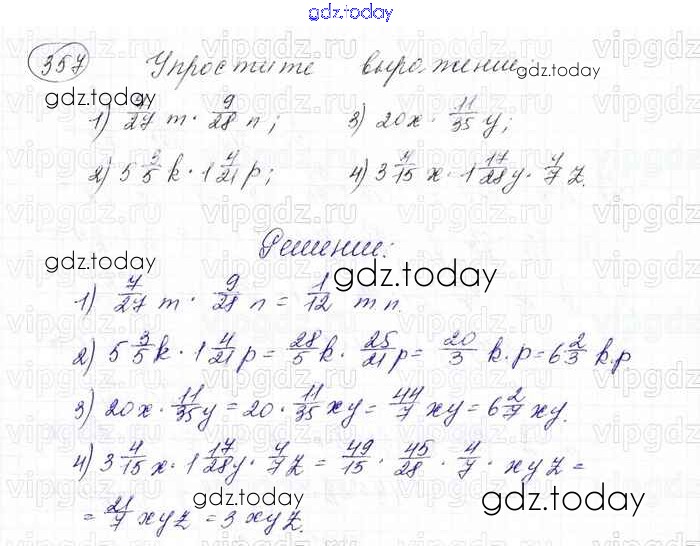 gdz.today
357 Упростите выражение:
gdz.today gdz.today
1) 7/27 m · 9/28 n; 3) 20x · 11/35 y;
2) 5 3/5 k · 1 4/21 p; 4) 3 4/15 x · 1 17/28 y · 4/7 z.
Решение:
gdz.today
1) 7/27 m · 9/28 n = 1/12 m n.
2) 5 3/5 k · 1 4/21 p = 28/5 k · 25/21 p = 20/3 k · p = 6 2/3 k · p
3) 20x · 11/35 y = 20 · 11/35 xy = 44/7 xy = 6 2/7 xy.
4) 3 4/15 x · 1 17/28 y · 4/7 z = 49/15 · 45/28 · 4/7 · xyz =
= 21/7 xyz = 3 xyz.
gdz.today gdz.today